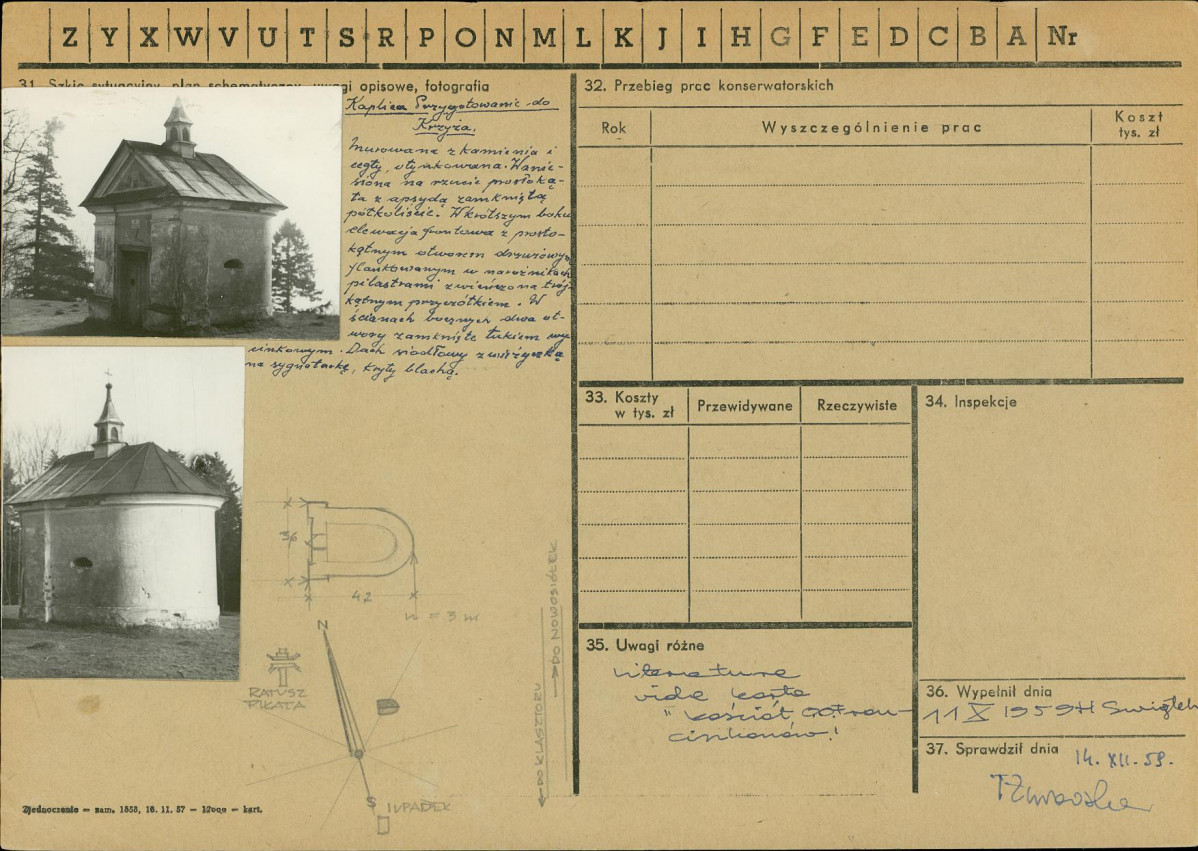 Z Y X W V U T S R P O N M L K J I H G F E D C B A Nr
31. Szkic sytuacyjny, plan schematyczny, uwagi opisowe, fotografia
Kaplica Przygotowanie do
Krzyża.
Murowana z kamienia i
cegły, otynkowana. Wznie-
siona na rzucie prostoką-
ta z apsydą zamkniętą
półkoliście. W krótszym boku
elewacja frontowa z prosto-
kątnym otworem drzwiowym
flankowanym w narożnikach
pilastrami zwieńczona trój-
kątnym przyczółkiem. W
ścianach bocznych dwa ot-
wory zamknięte łukiem wy-
cinkowym. Dach siodłowy z wieżyczką
na sygnaturkę, kryty blachą.
36
42
h = 3 m
N
RATUSZ
PIŁATA
S
II UPADEK
DO KLASZTORU
DO NOWOSIÓŁEK
Zjednoczenie — zam. 1858, 16. 11. 57 — 12000 — kart.
32. Przebieg prac konserwatorskich
Rok
Wyszczególnienie prac
Koszt
tys. zł
33. Koszty
w tys. zł
Przewidywane
Rzeczywiste
34. Inspekcje
35. Uwagi różne
Literatura
vide karta
"kościół OO. Fran-
ciszkanów!
36. Wypełnił dnia
11 X 1959
37. Sprawdził dnia
14. XII. 59.